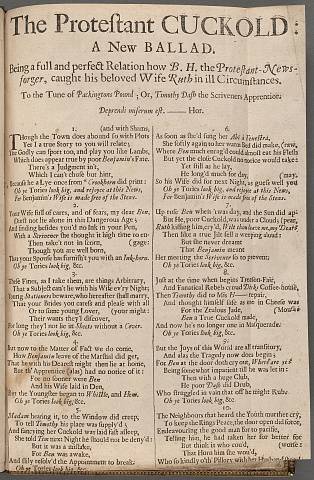 The Protestant CUCKOLD:
A New BALLAD.
Being a full and perfect Relation how B. H. the Protestant-News-
forger, caught his beloved Wife Ruth in ill Circumstances.
To the Tune of Packingtons Pound; Or, Timothy Dash the Scriveners Apprentice.
Deprendi miserum est. —— Hor.
1. (and with Shams,
Though the Town does abound so with Plots
Yes I a true Story to you will relate,
The Godly can sport too, and play too like Lambs,
Which does appear true by poor Benjamin's Fate.
There's a Judgment in't,
Which I can't chuse but hint,
Because he a Lye once from Crookhorn did print:
Oh ye Tories look big, and rejoice at this News,
For Benjamin's Wife is made free of the Stews.
2.
Your Wife full of cares, and of fears, my dear Ben,
Durst not lie alone in this Dangerous Age;
And finding besides you'd no Ink in your Pen,
With a Scrivener she thought it high time to en-
Then take't not in scorn, (gage:
Though you are well born,
That your Spouse has furnish'd you with an Inkhorn.
Oh ye Tories look big, &c.
3.
These Fines, as I take them, are things Arbitrary,
That a Subject can't lie with his Wife ev'ry Night;
Young Stationers beware, who hereafter shall marry,
That your Brides you caress and please with all
Or to some young Lover, (your might:
Their wants they'l discover,
For long they'l not lie in Sheets without a Cover.
Oh ye Tories look big, &c.
4.
But now to the Matter of Fact we do come,
How Benjamin leave of the Marshal did get,
That he with his Dearest might then lie at home,
But th' Apprentice (alas) had no notice of it:
For no sooner were Ben
And his Wife laid in Den,
But the Youngster began to Whistle, and Hem.
Oh ye Tories look big, &c.
5.
Madam hearing it, to the Window did creep,
To tell Timothy his place was supply'd;
And fancying her Cuckold was laid fast asleep,
She told Tim next Night he should not be deny'd:
But it was a mistake,
For Ben was awake,
And slily resolv'd the Appointment to break:
Oh ye Tories look big &c.
6.
As soon as she'd sung her Ale à Fenestra,
She softly again to her warm Bed did make,
Where How much enrag'd could almost eat his Flesh
But yet the close Cuckold no notice would take:
Yet still as he lay,
He long'd much for day,
So his Wife did for next Night, as guess well you
Oh ye Tories look big, and rejoice at this News,
For Benjamin's Wife is made free of the Stews.
7.
Up rose Ben when 't was day, and the Sun did ap-
But He, poor Cuckold, was under a Cloud;
Ruth kissing him, cry'd, Wilt thou leave me, my Dear?
Then like a true Jilt fell a weeping aloud:
But she never dreamt
That Benjamin meant
Her meeting the Scrivener so to prevent;
Oh ye Tories look big, &c.
8.
Just at the time when begins Treason-Fair,
And Fanatical Rebels crowd Dick's Coffee-house,
Then Timothy did to Mis H—— repair,
And thought himself safe as in Cheese was
For the Zealous Jade, (Mouse
Ben a True Cuckold made,
And now he's no longer one in Masquerade.
Oh ye Tories look big, &c.
9.
But the Joys of this World are all transitory,
And alas the Tragedy now does begin;
For Ben at the door doth cry out,
Being somewhat impatient till he was let in:
Then with a huge Club,
He poor Dash did Drub,
Who struggled in vain that off he might Rub.
Oh ye Tories look big, &c.
10.
The Neighbours that heard the Youth murther cry,
To keep the Kings Peace, the door open did force,
Endeavouring the good man to pacifie,
Telling him, he had taken her for better for
But think it who could, (worse:
That Horn him she wou'd,